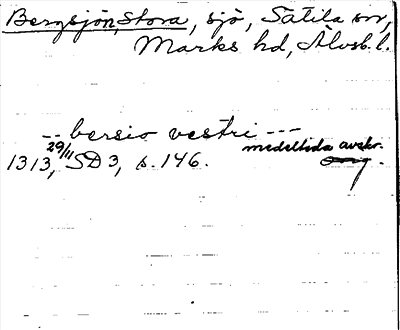 Bergsjön, Stora, sjö, Sätila sn,
Marks hd, Älvsb. l.
-- bersio vestri ---
1313, 29/11 SD 3, s. 146. medeltida avskr.